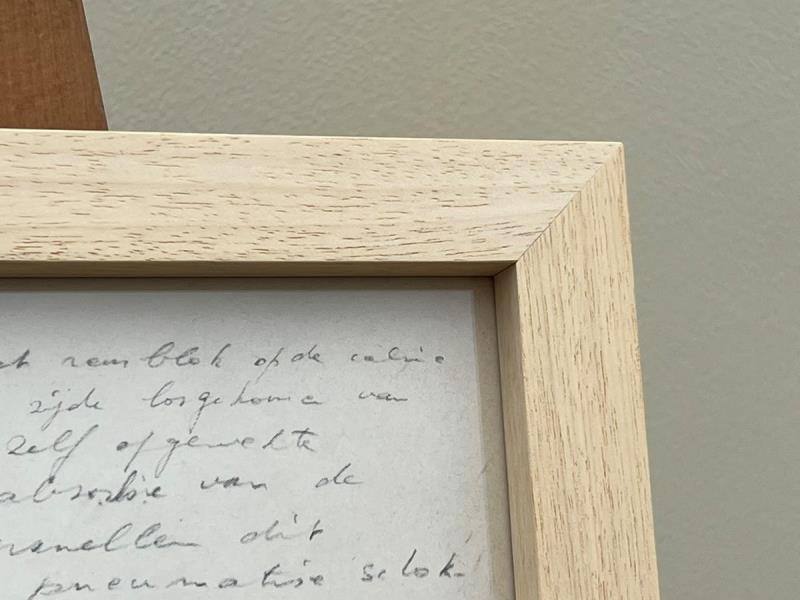 remblok op de
zijde losgekomen van
zelf opgewekte
absorbtie van de
dit
pneumatise schok-